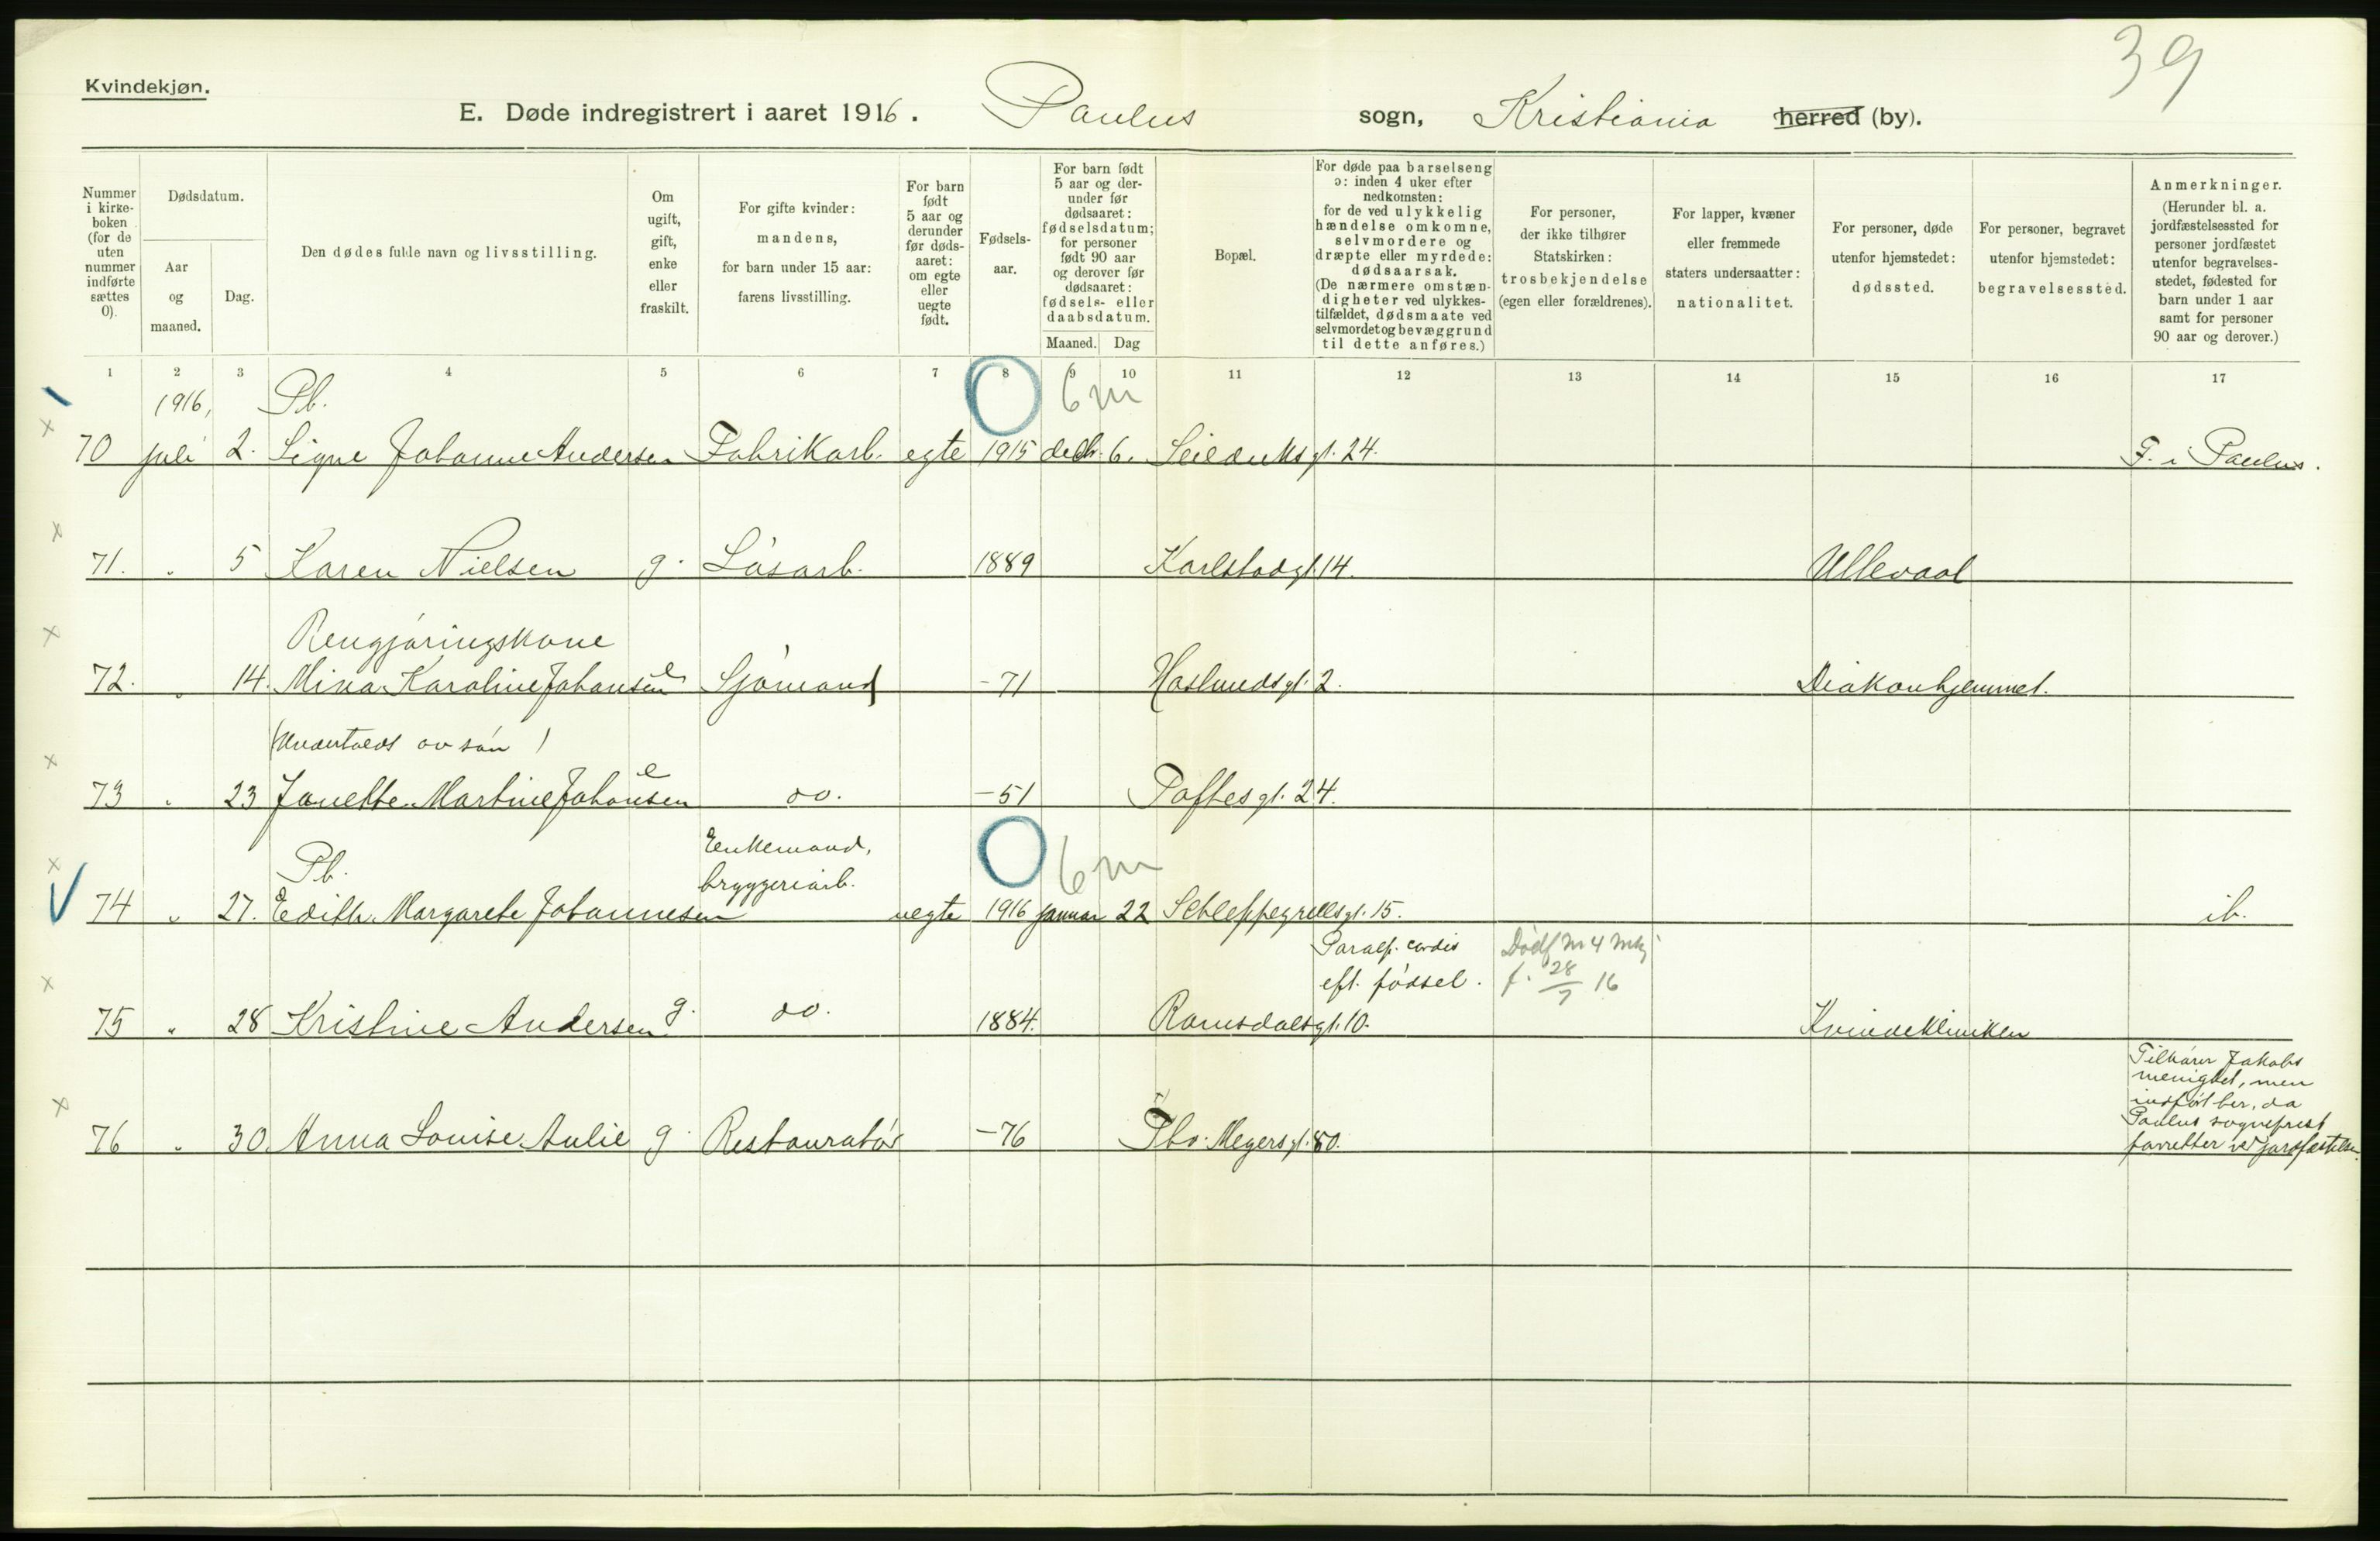 39
Kvindekjøn.
E. Døde indregistrert i aaret 1916. Paulus sogn, Kristiania herred (by).
Nummer i kirke-boken (for de uten nummer indførte sættes 0).
Dødsdatum.
Aar og maaned.
Dag.
Den dødes fulde navn og livsstilling.
Om ugift, gift, enke eller fraskilt.
For gifte kvinder: mandens, for barn under 15 aar: farens livsstilling.
For barn født 5 aar og derunder før døds-aaret: om egte eller uegte født.
Fødsels-aar.
For barn født 5 aar og der-under før dødsaaret: fødselsdatum; for personer født 90 aar og derover før dødsaaret: fødsels- eller daabsdatum.
Maaned. Dag
Bopæl.
For døde paa barselseng ɔ: inden 4 uker efter nedkomsten: for de ved ulykkelig hændelse omkomne, selvmordere og dræpte eller myrdede: dødsaarsak. (De nærmere omstæn-digheter ved ulykkes-tilfældet, dødsmaate ved selvmordet og bevæggrund til dette anføres.)
For personer, der ikke tilhører Statskirken: trosbekjendelse (egen eller forældrenes).
For lapper, kvæner eller fremmede staters undersaatter: nationalitet.
For personer, døde utenfor hjemstedet: dødssted.
For personer, begravet utenfor hjemstedet: begravelsessted.
Anmerkninger. (Herunder bl. a. jordfæstelsessted for personer jordfæstet utenfor begravelses-stedet, fødested for barn under 1 aar samt for personer 90 aar og derover.)
1 2 3 4 5 6 7 8 9 10 11 12 13 14 15 16 17
1916, Pb. 6 m
70 juli 2. Signe Johanne Andersen Fabrikarb. egte 1915 decb. 6. Seilduksgt. 24. F. i Paulus.
71. " 5 Karen Nielsen g. Løsarb. 1889 Karlstadgt. 14. Ullevaal
Rengjøringskone
72. " 14. Mina Karoline Johansen e Sjømand -71 Haslundsgt. 2. Diakonhjemmet.
(Underholdt av søn)
73 " 23 Janette Martine Johansen e do. -51 Toftesgt. 24.
Pb. Enkemand, bryggeriarb. 6 m
74 " 27. Edith Margarete Johannesen uegte 1916 januar 22 Schleppegrellsgt. 15. ib.
Paralys. cordis eft. fødsel. Dødf m 4 mk f. 28/7 16
75 " 28 Kristine Andersen g. do. 1884. Romsdalsgt. 10. Kvindekliniken
Tilhører Jakobs
menighet, men
indført her, da
Paulus sogneprest
forretter ved jordfæstelsen.
76 " 30. Anna Louise Aulie g. Restauratør -76 Thv. Meyersgt. 80.